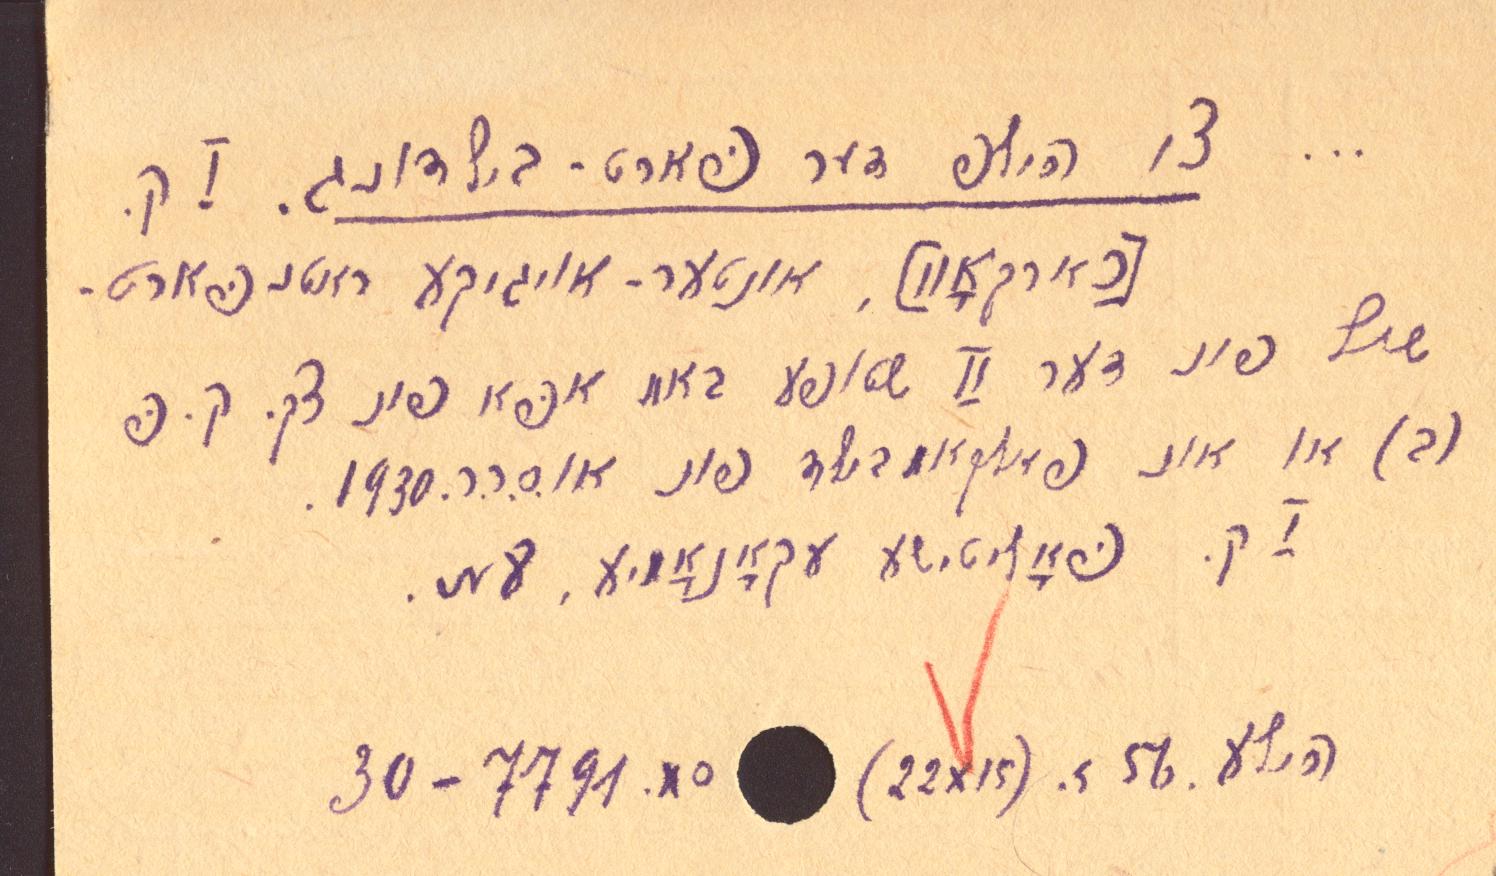 ... צו הילפ דער פּארט-בילדונג. I ק.
[כארקאָוו], אונטער-אויגיקע ראטנ-פּארט-
שול פונ דער II שטופע באמ אפּא פונ צק. ק. פּ
(ב) או אונ פאלקאמבילד פונ אוסרר. 1930.
I ק. פּאָליטישע עקאָנאָמיע,
הילע. 56 ז. (22x1) סמ. 7791 - 30